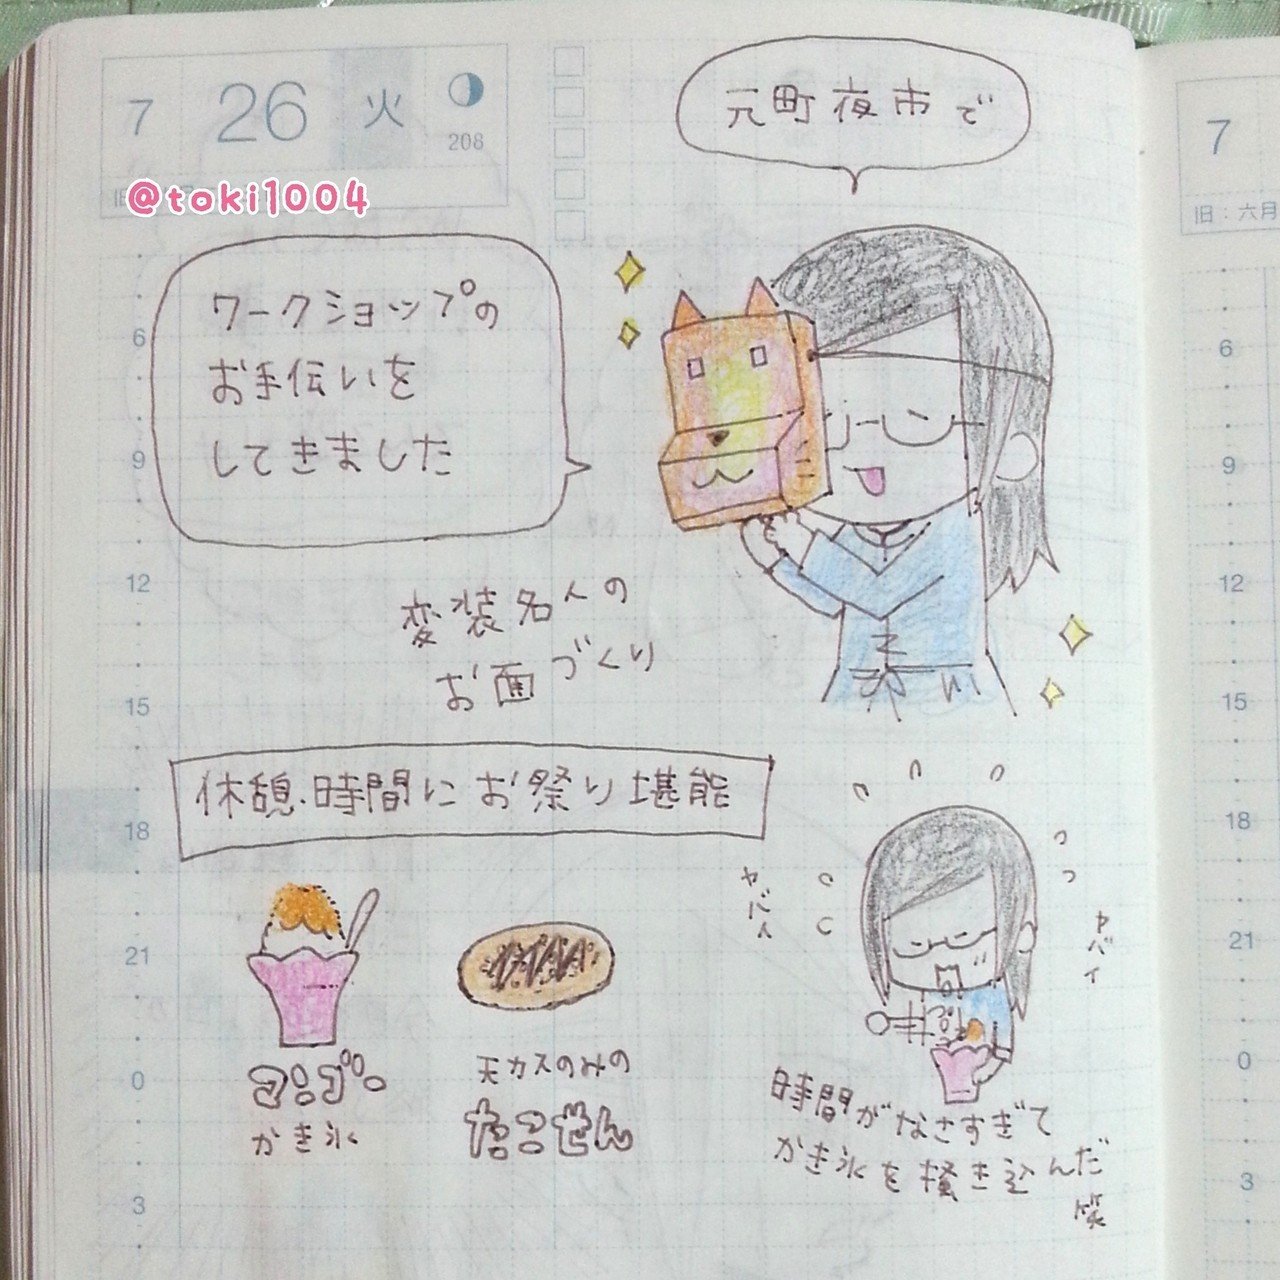 7 26 火
208
@toki1004
元町夜市で
ワークショップの
お手伝いを
してきました
変装名人の
お面づくり
休憩時間にお祭り堪能
マンゴー
かき氷
天カスのみの
たこせん
ヤバイ
ヤバイ
時間がなさすぎて
かき氷を掻き込んだ
笑
6
9
12
15
18
21
0
3
7
旧:六月
6
9
12
15
18
21
0
3